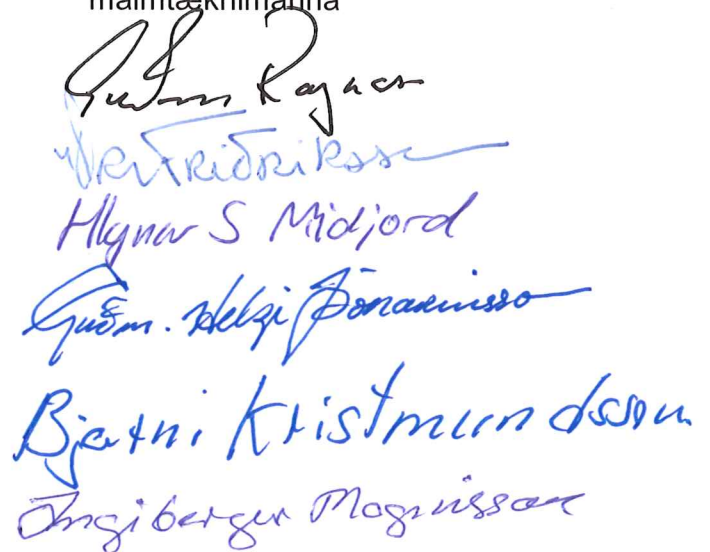 málmtæknimanna
Guðm Ragnars
Friðriksson
Hlynur S Midjord
Guðm. Helgi Þórarinsson
Bjarni Kristmundsson
Ingiberger Magnússon